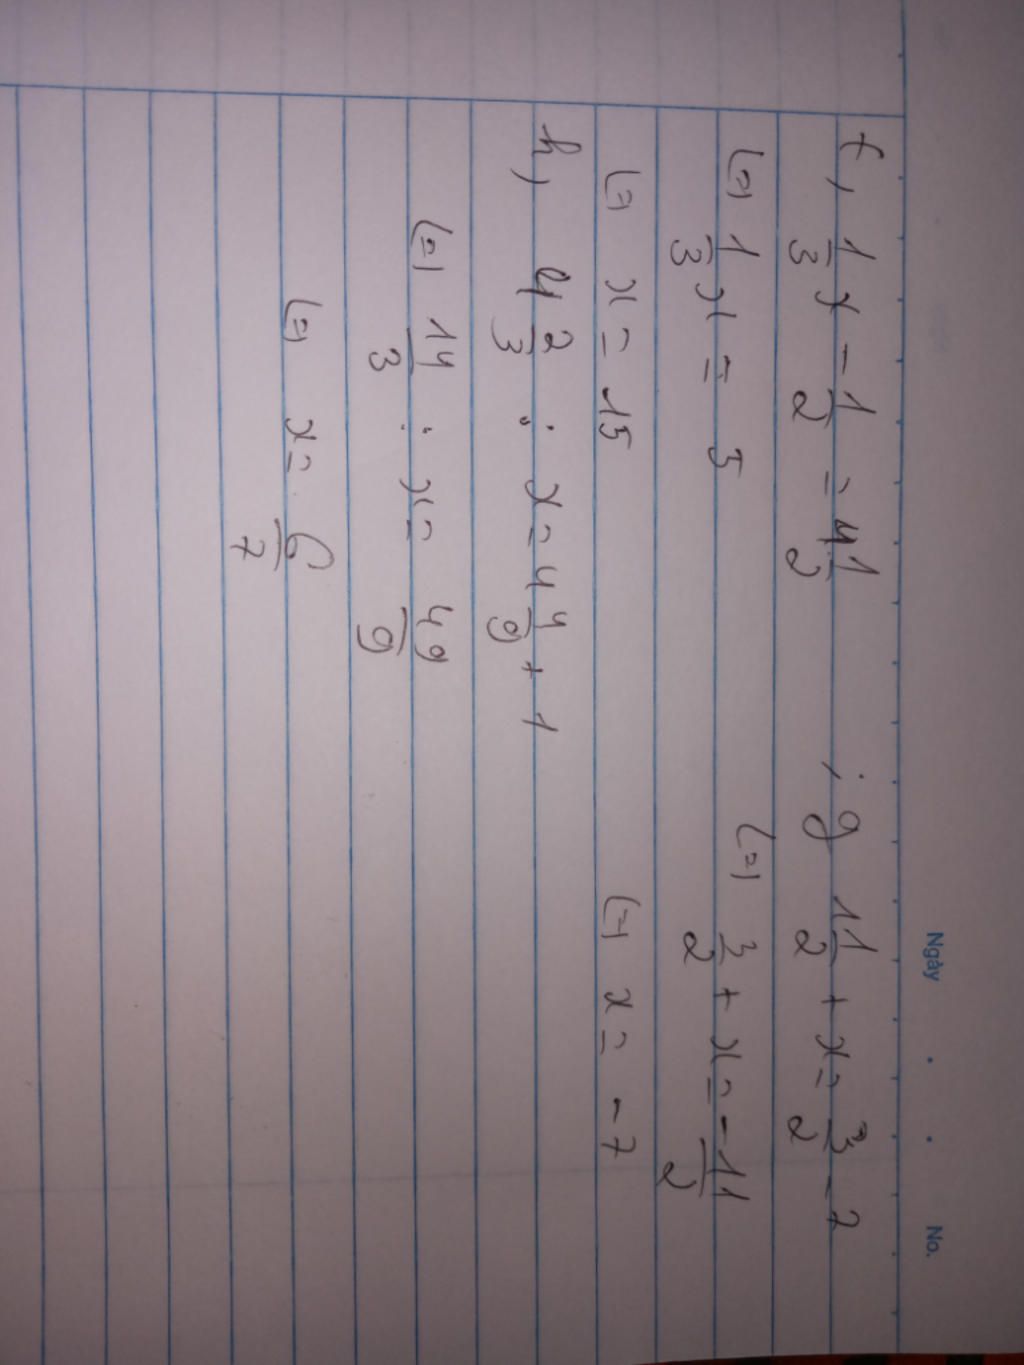 Ngày . . No.
f, 1/3 x - 1/2 = 4 1/2 ; g 1 1/2 + x = 3/2 - 7
(=) 1/3 x = 5 (=) 3/2 + x = -11/2
(=) x = 15 (=) x = -7
h, 4 2/3 : x = 4 4/9 + 1
(=) 14/3 : x = 49/9
(=) x = 6/7